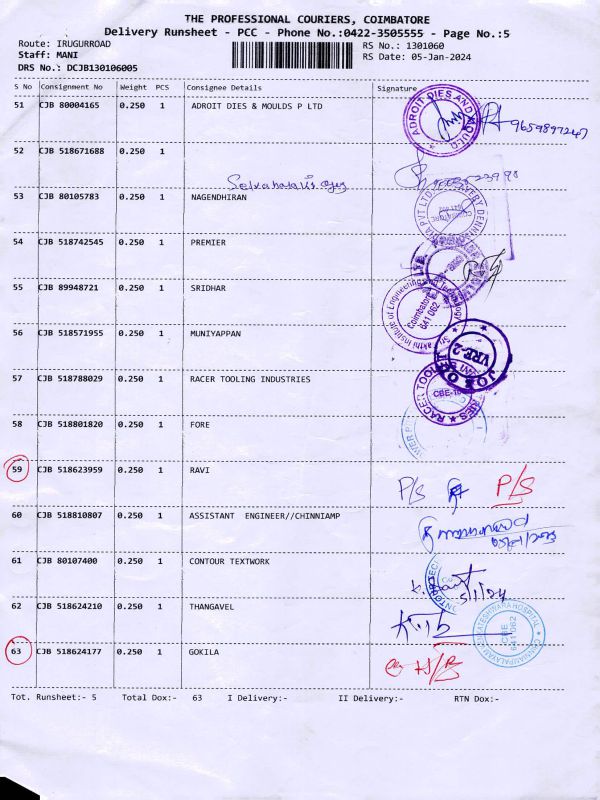 THE PROFESSIONAL COURIERS, COIMBATORE
Delivery Runsheet - PCC - Phone No.:0422-3505555 - Page No.:5
Route: IRUGURROAD
RS No.: 1301060
Staff: MANI
RS Date: 05-Jan-2024
DRS No.: DCJB130106005
S No Consignment No Weight PCS Consignee Details Signature
51 CJB 80004165 0.250 1 ADROIT DIES & MOULDS P LTD
ADROIT DIES AND MOULD
9659897247
52 CJB 518671688 0.250 1
53 CJB 80105783 0.250 1 NAGENDHIRAN
54 CJB 518742545 0.250 1 PREMIER
55 CJB 89948721 0.250 1 SRIDHAR
Institute of Engineering and Technology
Coimbatore
641 062
56 CJB 518571955 0.250 1 MUNIYAPPAN
VRF-2
57 CJB 518788029 0.250 1 RACER TOOLING INDUSTRIES
58 CJB 518801820 0.250 1 FORE
59 CJB 518623959 0.250 1 RAVI
P/S P/S
60 CJB 518810807 0.250 1 ASSISTANT ENGINEER//CHINNIAMP
61 CJB 80107400 0.250 1 CONTOUR TEXTWORK
5/1/24
62 CJB 518624210 0.250 1 THANGAVEL
CBE
641 062
63 CJB 518624177 0.250 1 GOKILA
Tot. Runsheet:- 5 Total Dox:- 63 I Delivery:- II Delivery:- RTN Dox:-